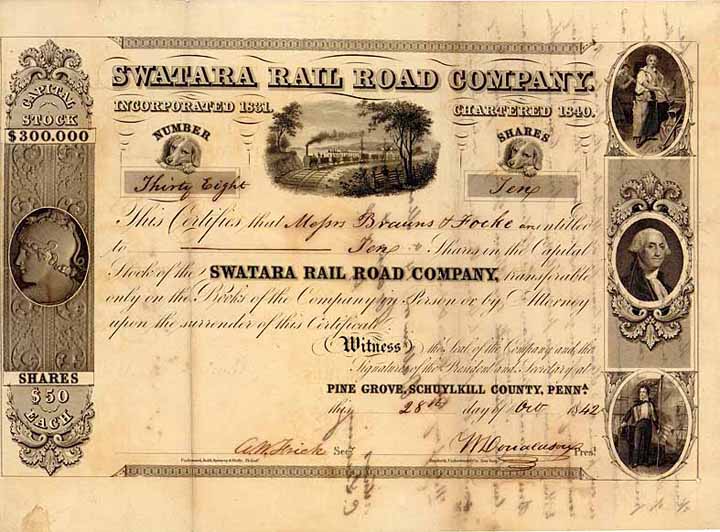 SWATARA RAIL ROAD COMPANY.
INCORPORATED 1831. CHARTERED 1840.
CAPITAL
STOCK
$300.000
NUMBER SHARES
Thirty Eight Ten
This Certifies that Messrs Brauns & Focke are entitled
to Ten Shares in the Capital
Stock of the SWATARA RAIL ROAD COMPANY, transferable
only on the Books of the Company in Person or by Attorney
upon the surrender of this Certificate
Witness the Seal of the Company and the
Signatures of the President and Secretary at
PINE GROVE, SCHUYLKILL COUNTY, PENNA
this 28th day of Oct 1842
SHARES
$50
EACH
Secy
Donaldson Prest